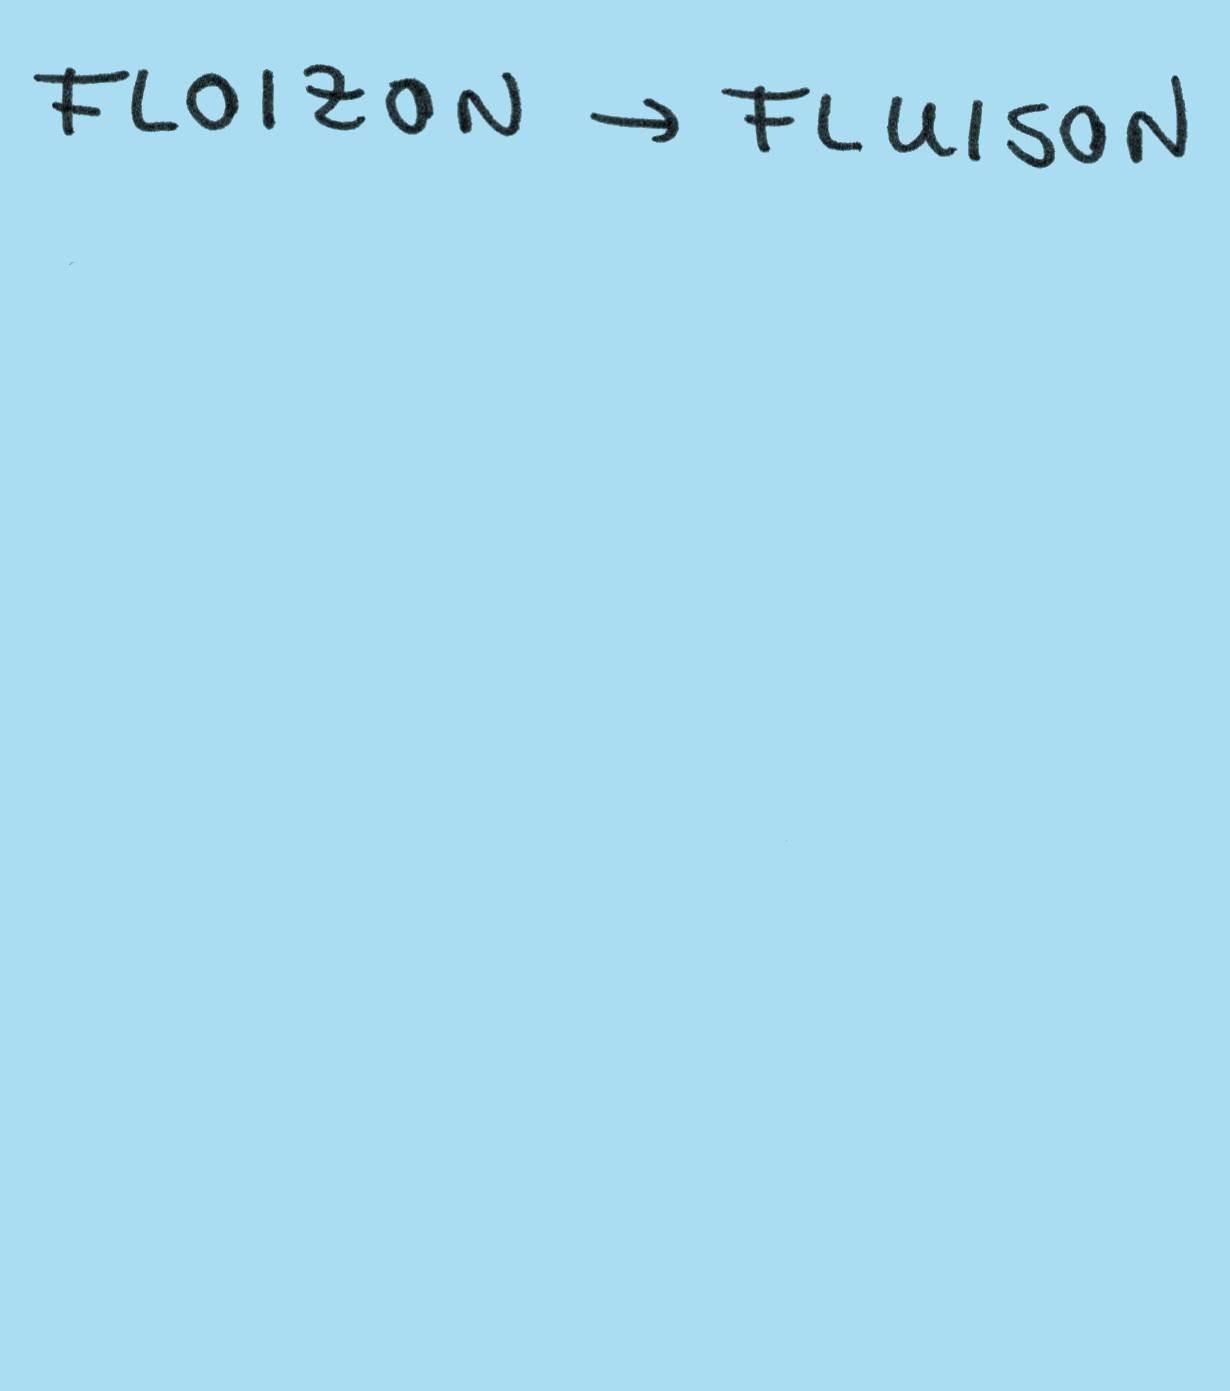 FLOIZON → FLUISON